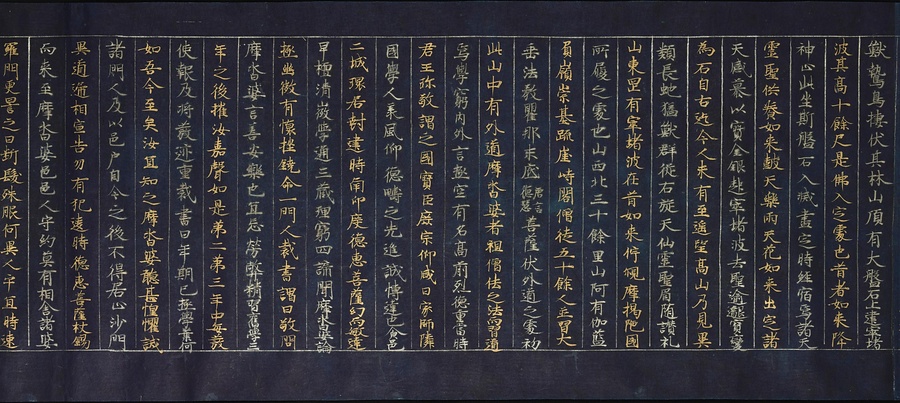 獸鷙鳥捿伏其林山頂有大盤石上建窣堵
波其高十餘尺是佛入定處也昔者如來降
神止山坐斯盤石入滅盡定時經宿焉諸天
靈聖供養如來皷天樂雨天花如來出定諸
天感慕以寶金銀起窣堵波去聖逾邈寶變
為石自古迄今人未有至遙望高山乃見異
類長虵猛獸群從右旋天仙靈聖肩隨讚礼
山東罡有窣堵波在昔如來佇觀摩揭陁國
所履之處也山西北三十餘里山阿有伽藍
負嶺崇基疏崖峙閣僧徒五十餘人並習大
乘法教瞿那末底唐言德慧菩薩伏外道之處初
此山中有外道摩沓婆者祖僧佉之法習道
焉學窮內外言極空有名高前列德重當時
君王珎敬謂之國寶臣庶宗仰咸曰家師隣
國學人承風仰德疇之先進誠愽達也食邑
二城環居封建時南印度德惠菩薩幻而敏達
早檀清㣲學通三藏理窮四諦聞摩沓婆論
極幽微有懷挫銳命一門人裁書謂曰敬問
摩沓婆善安樂也宜忘勞弊精習舊學三
年之後摧汝嘉聲如是第二第三年中每發
使報及將發迹重裁書曰年期已極學業何
如吾今至矣汝宜知之摩沓婆聽甚惶懼誡
諸門人及以邑戶自今之後不得居止沙門
異道遞相宣告勿有犯違時德惠菩薩杖錫
而來至摩沓婆邑邑人守約莫有相舍諸婆
羅門更詈之曰斷髮殊服何異人乎宜時速